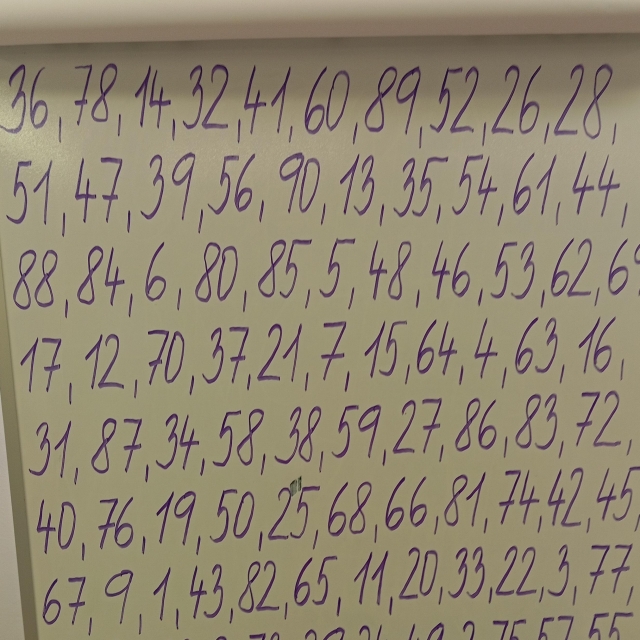 36, 78, 14, 32, 41, 60, 89, 52, 26, 28,
51, 47, 39, 56, 90, 13, 35, 54, 61, 44,
88, 84, 6, 80, 85, 5, 48, 46, 53, 62, 69
17, 12, 70, 37, 21, 7, 15, 64, 4, 63, 16,
31, 87, 34, 58, 38, 59, 27, 86, 83, 72,
40, 76, 19, 50, 25, 68, 66, 81, 74, 42, 45,
67, 9, 1, 43, 82, 65, 11, 20, 33, 22, 3, 77,
75, 57, 55